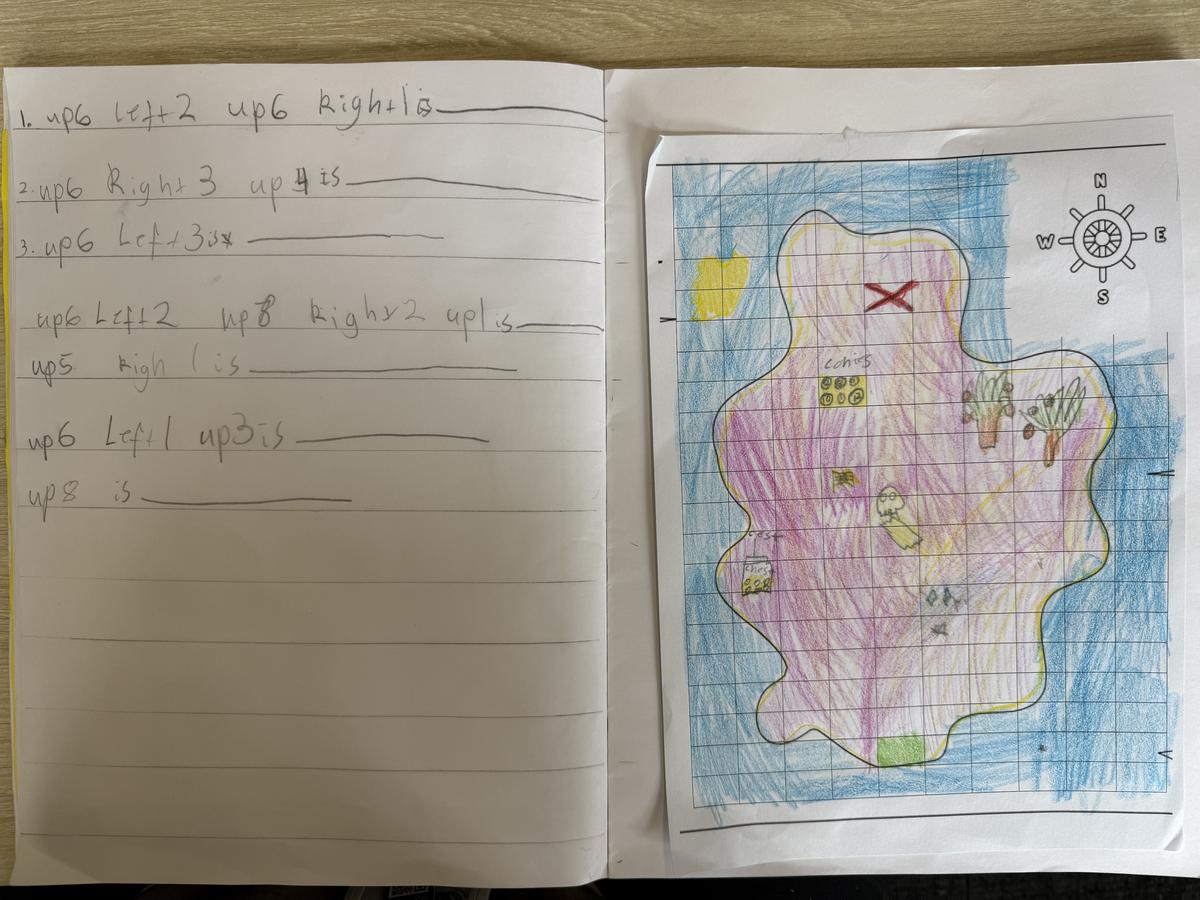 1. up6 Left2 up6 Right1is
2. up6 Right3 up4is
3. up6 Left3is
up6 Left2 up8 Right2 up1is
up5 Righ 1is
up6 Left1 up3is
up8 is
N
W E
S
cohies
cest
chest